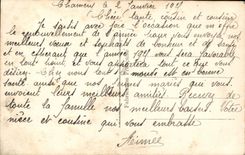 Chamery le 2 Janvier 1918
Chère tante, cousin et cousine
Je saisis avec joie l'occasion que me offre
le renouvellement de l'année pour vous envoyer nos
meilleurs vœux et souhaits de bonheur et de santé
et en espérant que l'année vous sera favorable
en tout point et vous apportera tout ce que vous
désirez. Chez nous tout le monde est en bonne
santé ainsi que nos jeunes mariés que vous
envoient leurs meilleurs amitiés. Recevez de
toute la famille nos meilleurs baisers. Votre
nièce et cousine qui vous embrasse
Aimée